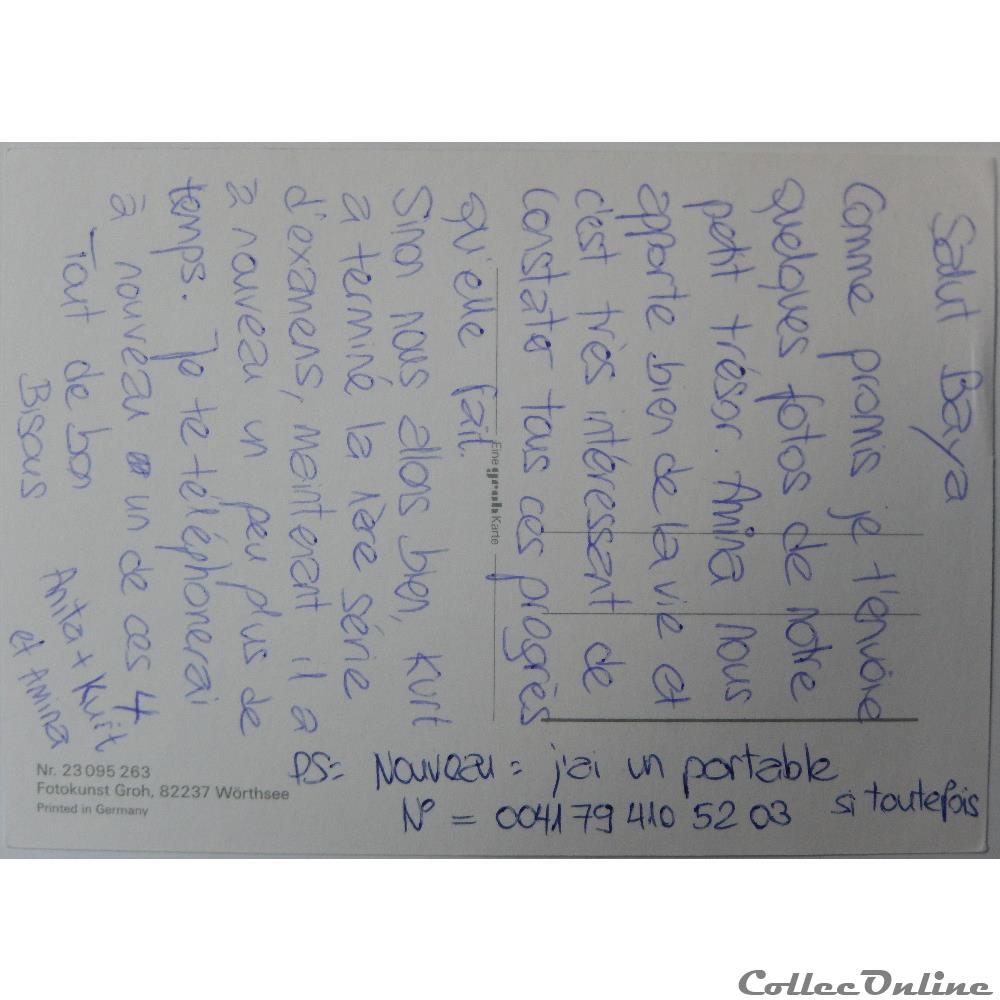 Salut Baya
Comme promis je t'envoie
quelques fotos de notre
petit trésor. Amina nous
apporte bien de la vie et
c'est très intéressant de
constater tous ces progrès
qu'elle fait.
Sinon nous allons bien, Kurt
a terminé la 1ère série
d'examens, maintenant il a
à nouveau un peu plus de
temps. Je te téléphonerai
à nouveau un de ces 4
Tout de bon
Bisous
Anita + Kurt
et Amina
PS: Nouveau = j'ai un portable
N° = 0041 79 410 52 03 si toutefois
Eine groh Karte
Nr. 23 095 263
Fotokunst Groh, 82237 Wörthsee
Printed in Germany
CollecOnline